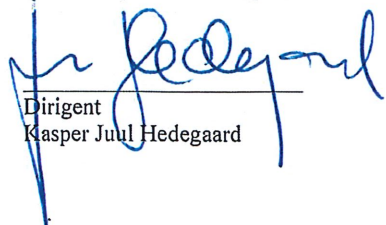 Dirigent
Kasper Juul Hedegaard